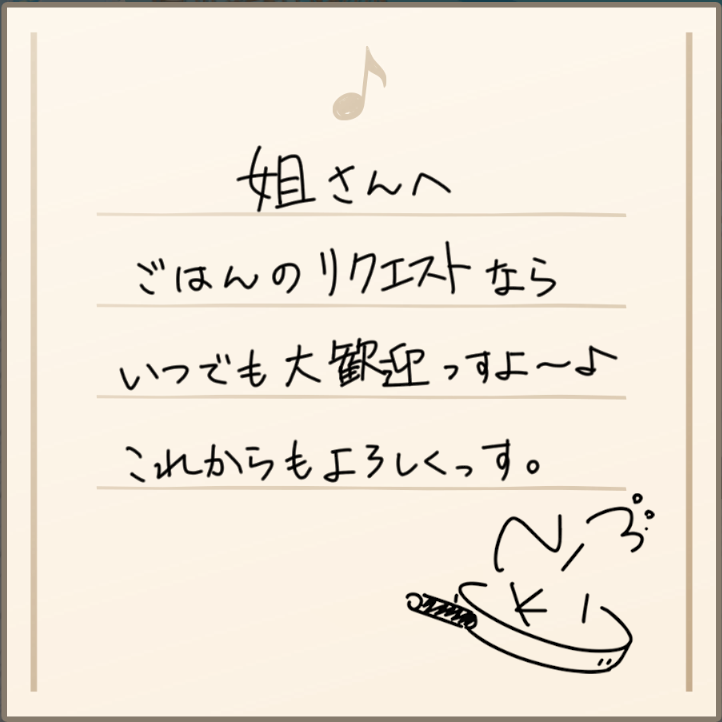 姐さんへ
ごはんのリクエストなら
いつでも大歓迎っすよ〜♪
これからもよろしくっす。
KI